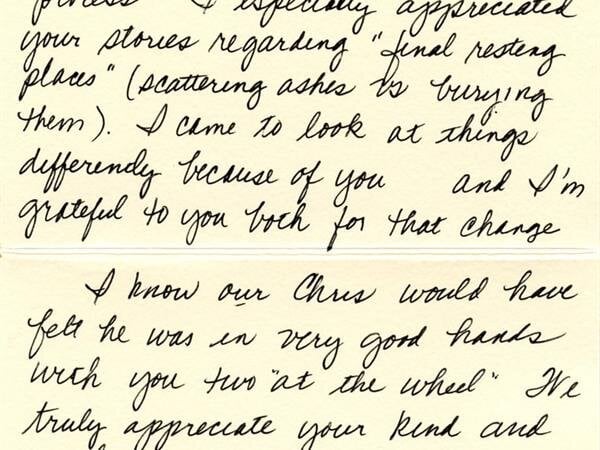 process I especially appreciated
your stories regarding "final resting
places" (scattering ashes vs burying
them). I came to look at things
differendy because of you and I'm
grateful to you both for that change
I know our Chris would have
felt he was in very good hands
with you two "at the wheel" We
truly appreciate your kind and